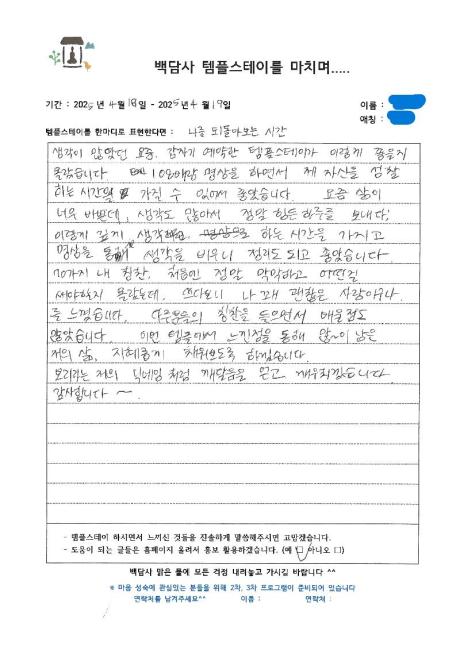 백담사 템플스테이를 마치며.....
기간 : 2025년 4월 18일 - 2025년 4월 19일
이름 :
애칭 :
템플스테이를 한마디로 표현한다면 : 나를 되돌아보는 시간
생각이 많았던 요즘, 갑자기 예약한 템플스테이가 이렇게 좋을지
몰랐습니다. 108배와 명상을 하면서 제 자신을 성찰
하는 시간을 가질 수 있어서 좋았습니다. 요즘 삶이
너무 바쁜데, 생각도 많아서 정말 힘든 하루를 보내다
이렇게 깊게 생각하고, 하는 시간을 가지고
명상을 통해 생각을 비우니 정리도 되고 좋았습니다.
10가지 내 칭찬, 처음엔 정말 막막하고 어떤걸
써야할지 몰랐는데, 쓰다보니 나 꽤 괜찮은 사람이구나
를 느꼈습니다. 다른분들의 칭찬을 들으면서 배울점도
많았습니다. 이번 템플에서 느낀점을 통해 많이 남은
저의 삶, 지혜롭게 채워보도록 하겠습니다.
보리라는 저의 닉네임처럼 깨달음을 얻고 깨우치겠습니다
감사합니다 ~
- 템플스테이 하시면서 느끼신 것들을 진솔하게 말씀해주시면 고맙겠습니다.
- 도움이 되는 글들은 홈페이지 올려서 홍보 활용하겠습니다. (예 □ 아니오 □)
백담사 맑은 물에 모든 걱정 내려놓고 가시길 바랍니다 ^^
※ 마음 성숙에 관심있는 분들을 위해 2차, 3차 프로그램이 준비되어 있습니다
연락처를 남겨주세요^^ 이름 : 연락처 :